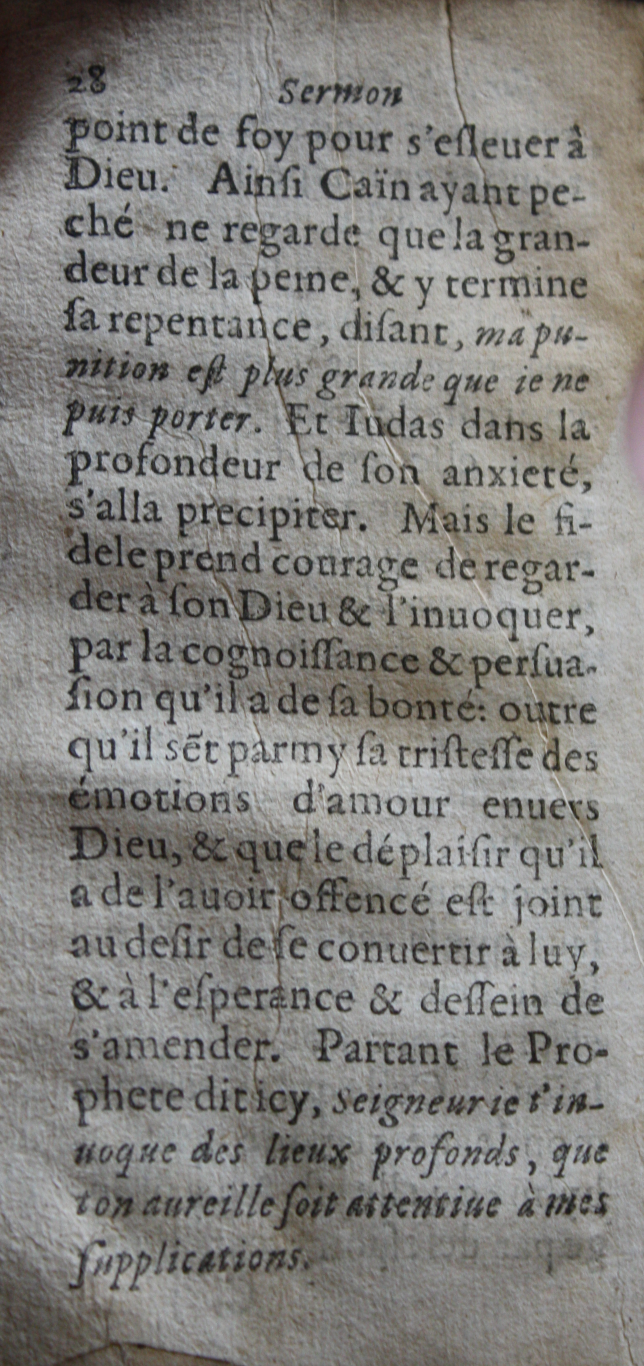 28 Sermon
point de foy pour s'eſleuer à
Dieu. Ainſi Caïn ayant pe-
ché ne regarde que la gran-
deur de la peine, & y termine
ſa repentance, diſant, ma pu-
nition eſt plus grande que ie ne
puis porter. Et Iudas dans la
profondeur de ſon anxieté,
s'alla precipiter. Mais le fi-
dele prend courage de regar-
der à ſon Dieu & l'inuoquer,
par la cognoiſſance & perſua-
ſion qu'il a de ſa bonté: outre
qu'il sẽt parmy ſa triſteſſe des
émotions d'amour enuers
Dieu, & que le déplaiſir qu'il
a de l'auoir offencé eſt joint
au deſir de ſe conuertir à luy,
& à l'eſperance & deſſein de
s'amender. Partant le Pro-
phete dit icy, Seigneur ie t'in-
uoque des lieux profonds, que
ton aureille ſoit attentiue à mes
ſupplications.